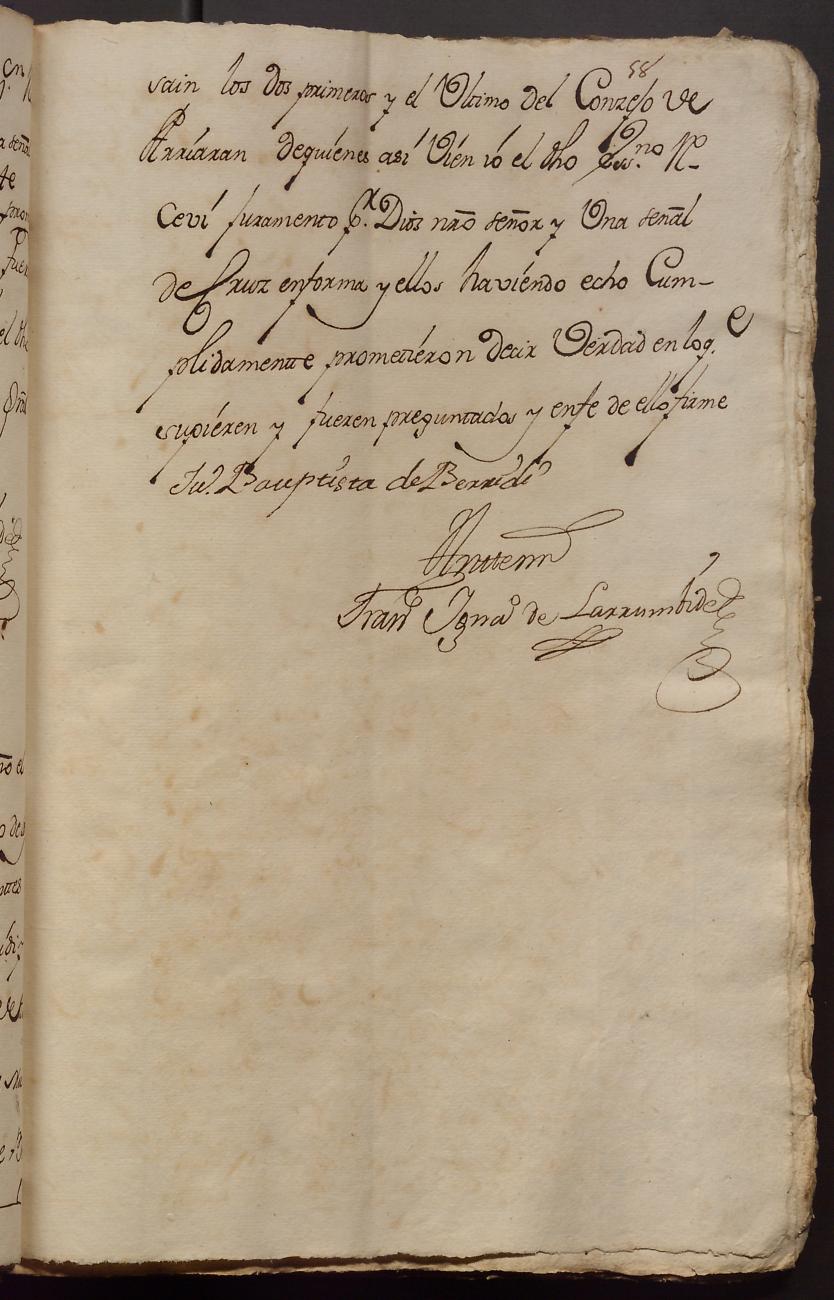 58
sain los dos primeros y el Ultimo del Conzejo de
Arriaran dequienes asi Vien io el dho Ess.no R-
Ceví juramento p.r Dios nrõ señor y Una señal
de Cruz enforma y ellos haviendo echo Cum-
plidamente prometieron decir Verdad en loq.e
supieren y fueren preguntados y enfe de ello firme
Ju.o Bauptista de Berridi
Anttemi
Fran.co Igna.o de Larrumbide